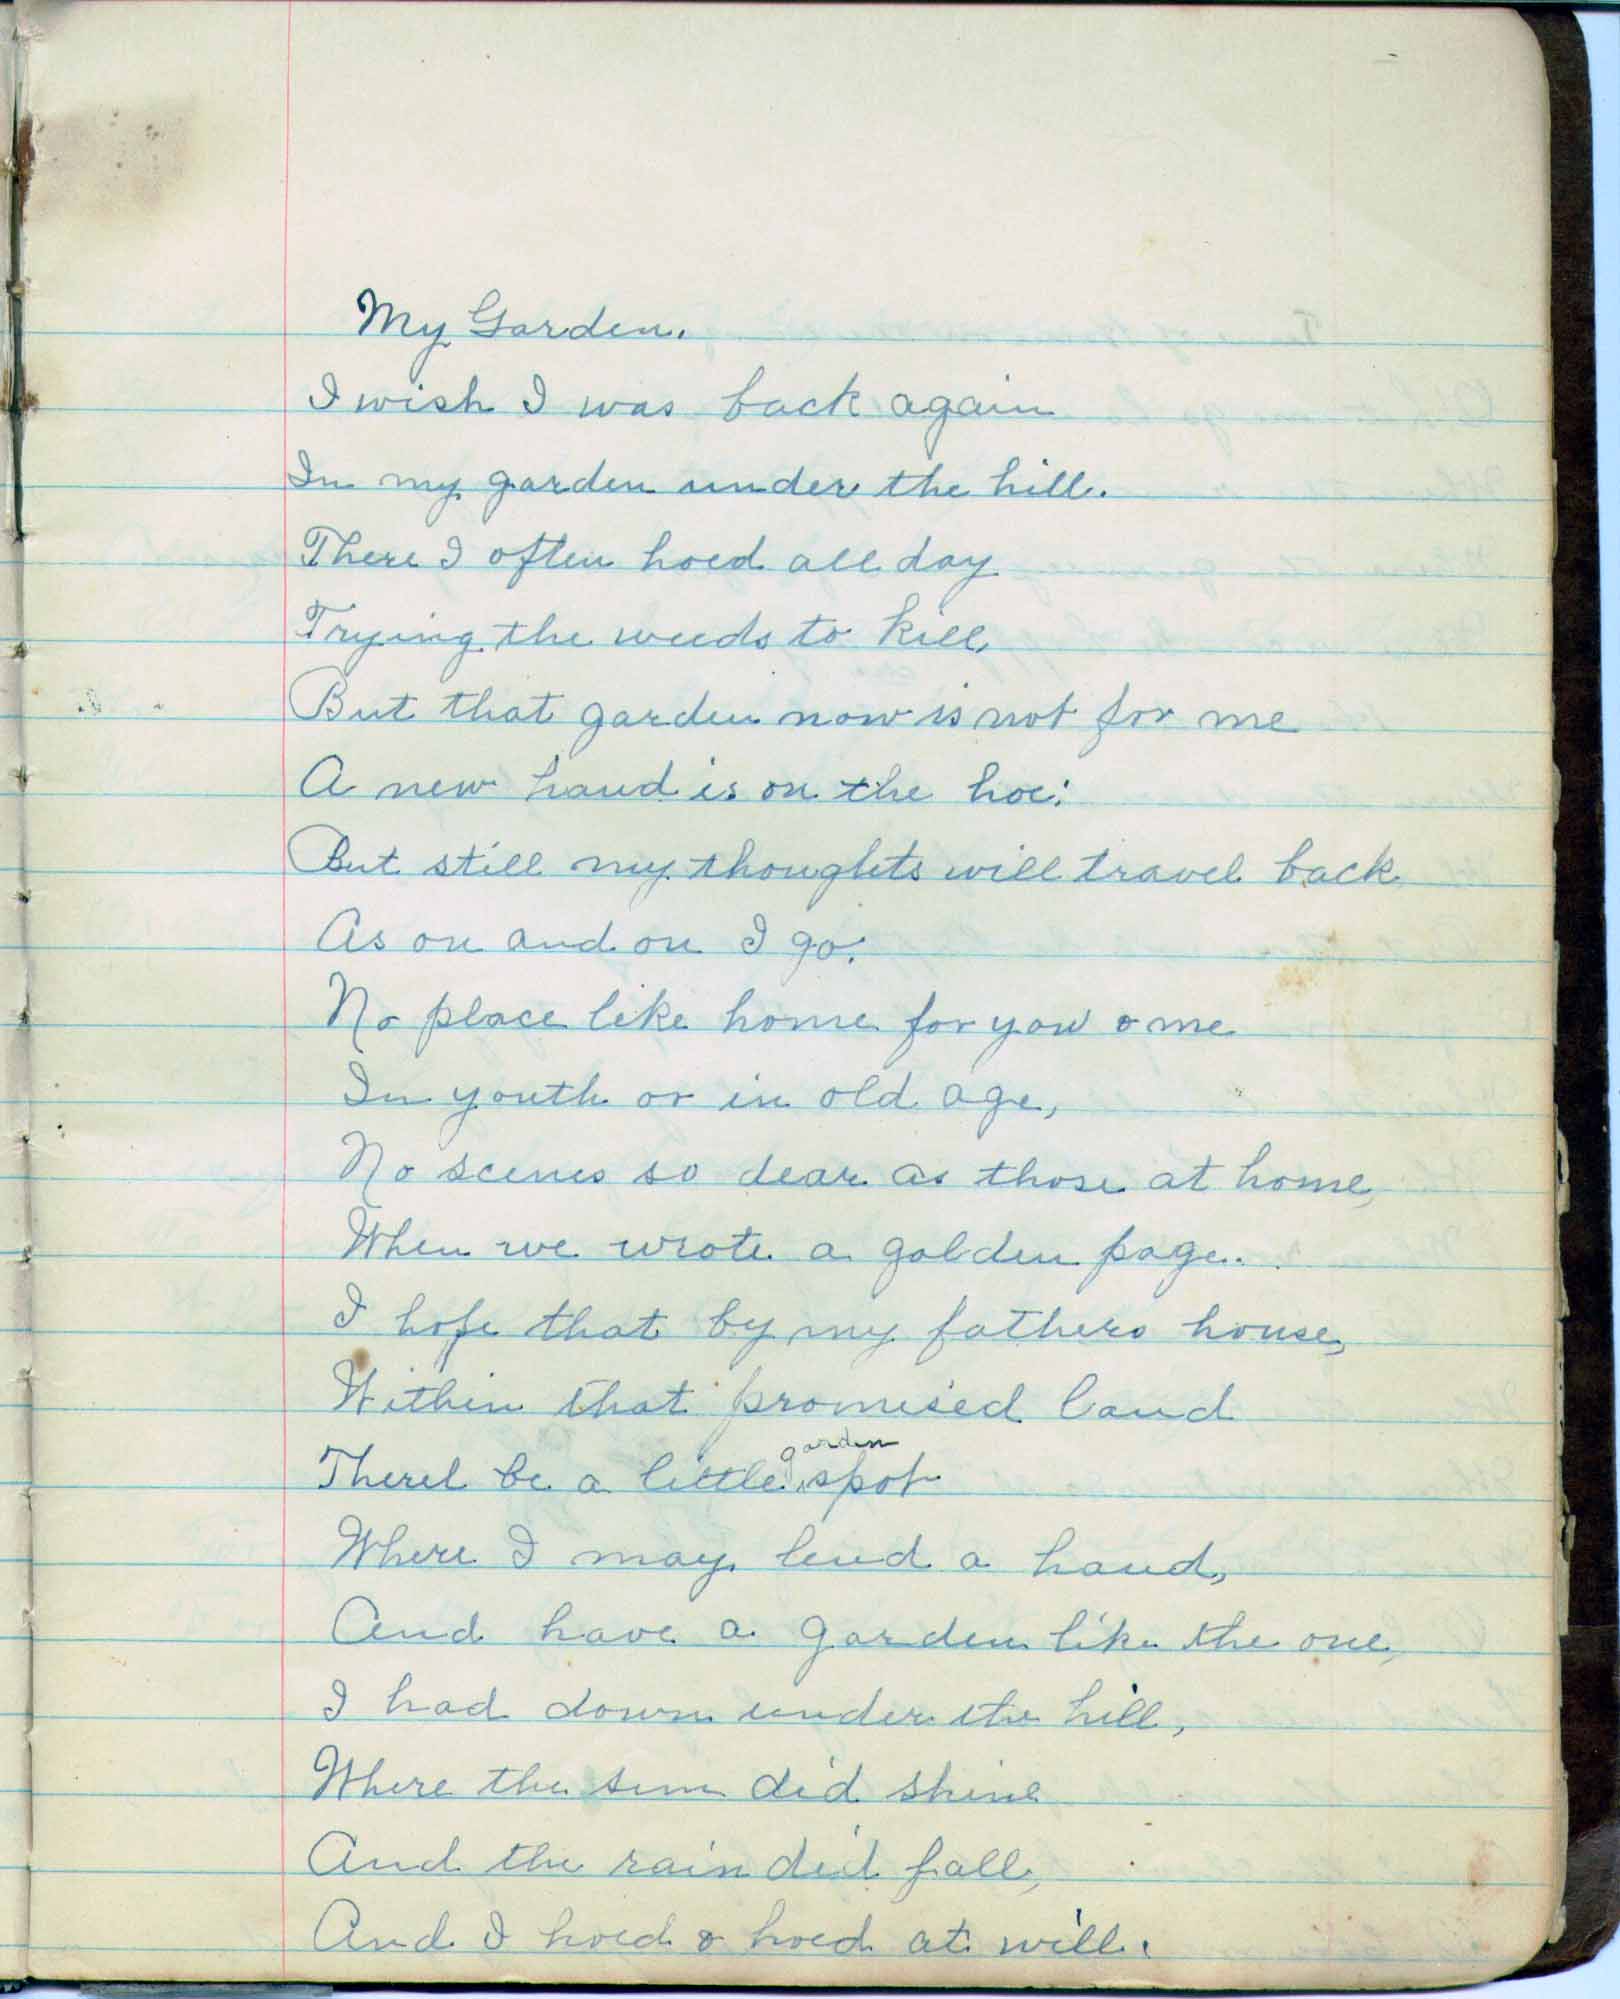 My Garden.
I wish I was back again
In my garden under the hill.
There I often hoed all day
Trying the weeds to kill,
But that garden now is not for me
A new hand is on the hoe;
But still my thoughts will travel back
As on and on I go.
No place like home for you & me
In youth or in old age,
No scenes so dear as those at home,
When we wrote a golden page.
I hope that by my fathers house,
Within that promised land
Therel be a little garden spot
Where I may lend a hand,
And have a garden like the one,
I had down under the hill,
Where the sun did shine
And the rain did fall,
And I hoed & hoed at will.